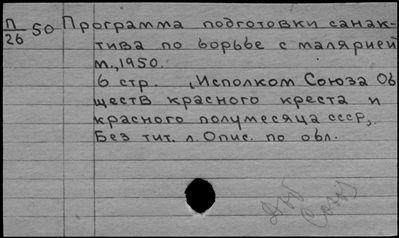 П/26 50 Программа подготовки санак-
тива по борьбе с малярией
м., 1950.
6 стр. (Исполком Союза Об
ществ красного креста и
красного полумесяца СССР).
Без тит. л. Опис. по обл.